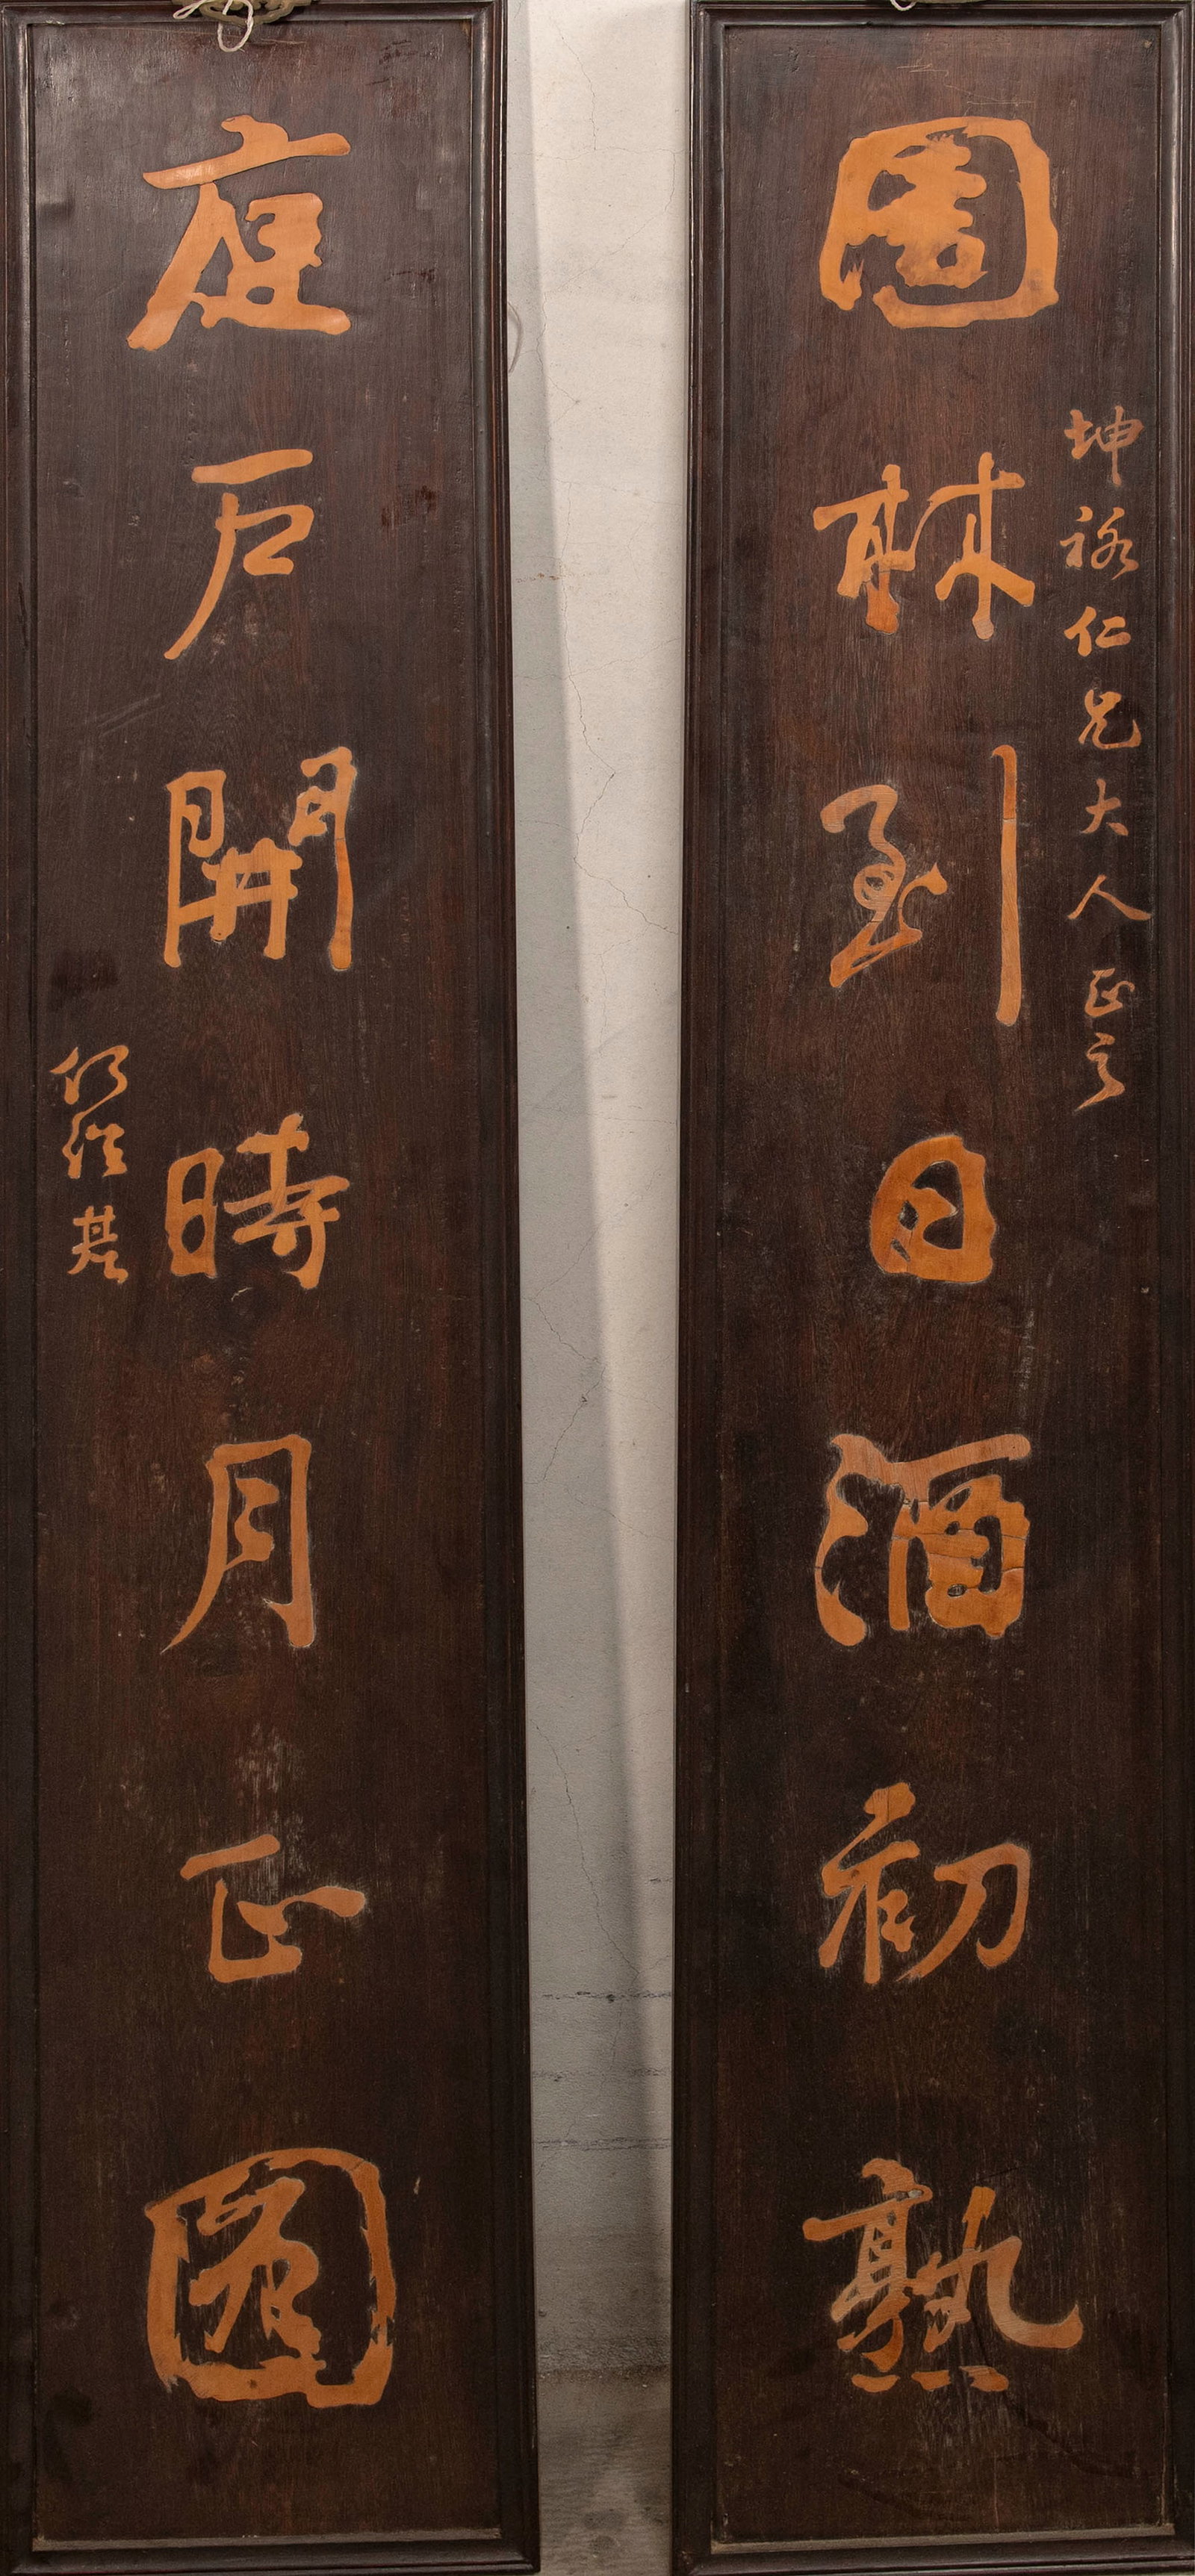 坤裕仁兄大人正之
園林到日酒初熟
庭戶開時月正圓
何紹基